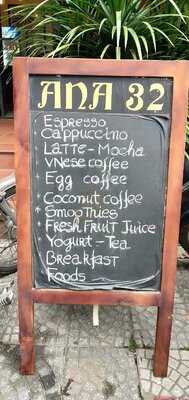 ANA 32
Espresso
Cappuccino
Latte - Mocha
VNese coffee
Egg coffee
Coconut coffee
Smoothies
Fresh Fruit Juice
Yogurt - Tea
Breakfast
Foods